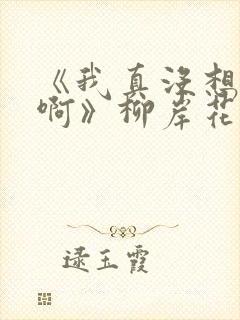 《我真没想
啊》柳岸花
逯玉霞